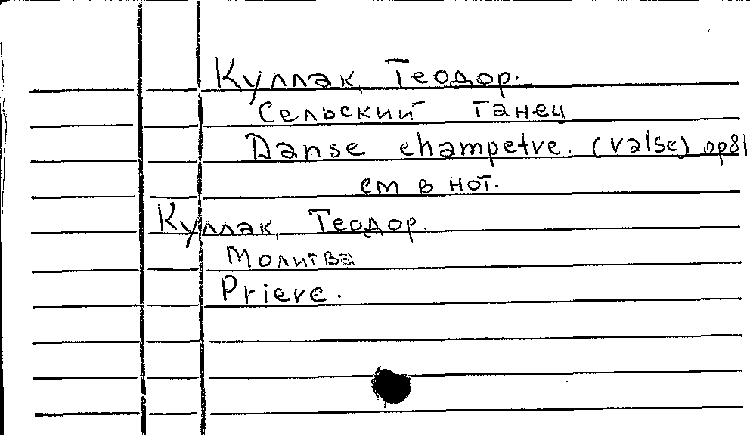 Куллак, Теодор.
Сельский танец
Danse champetre. (valse) op81
см в нот.
Куллак, Теодор.
Молитва
Priere.